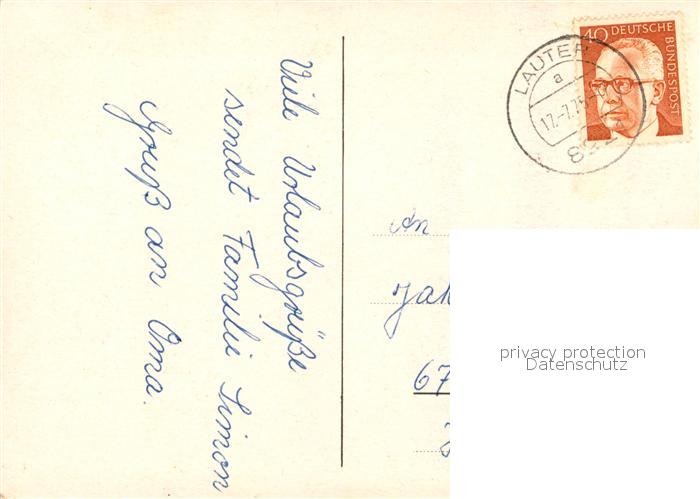 Viele Urlaubsgrüße
sendet Familie Simon
Gruß an Oma.
40 DEUTSCHE
BUNDESPOST
LAUTER
a
17.-7.75
An
Jak
67
privacy protection
Datenschutz